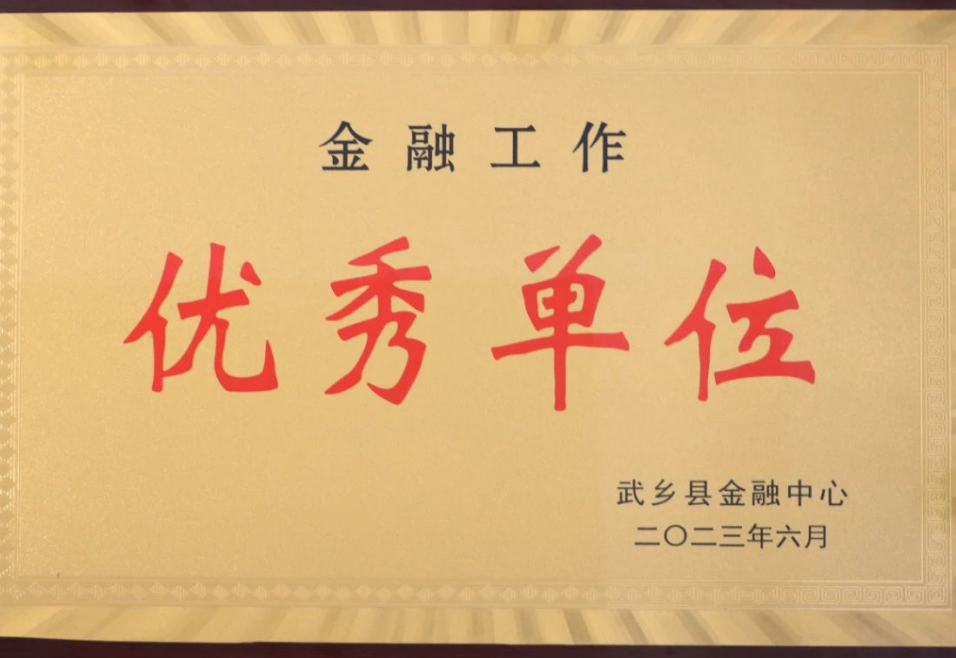 金融工作
优秀单位
武乡县金融中心
二〇二三年六月